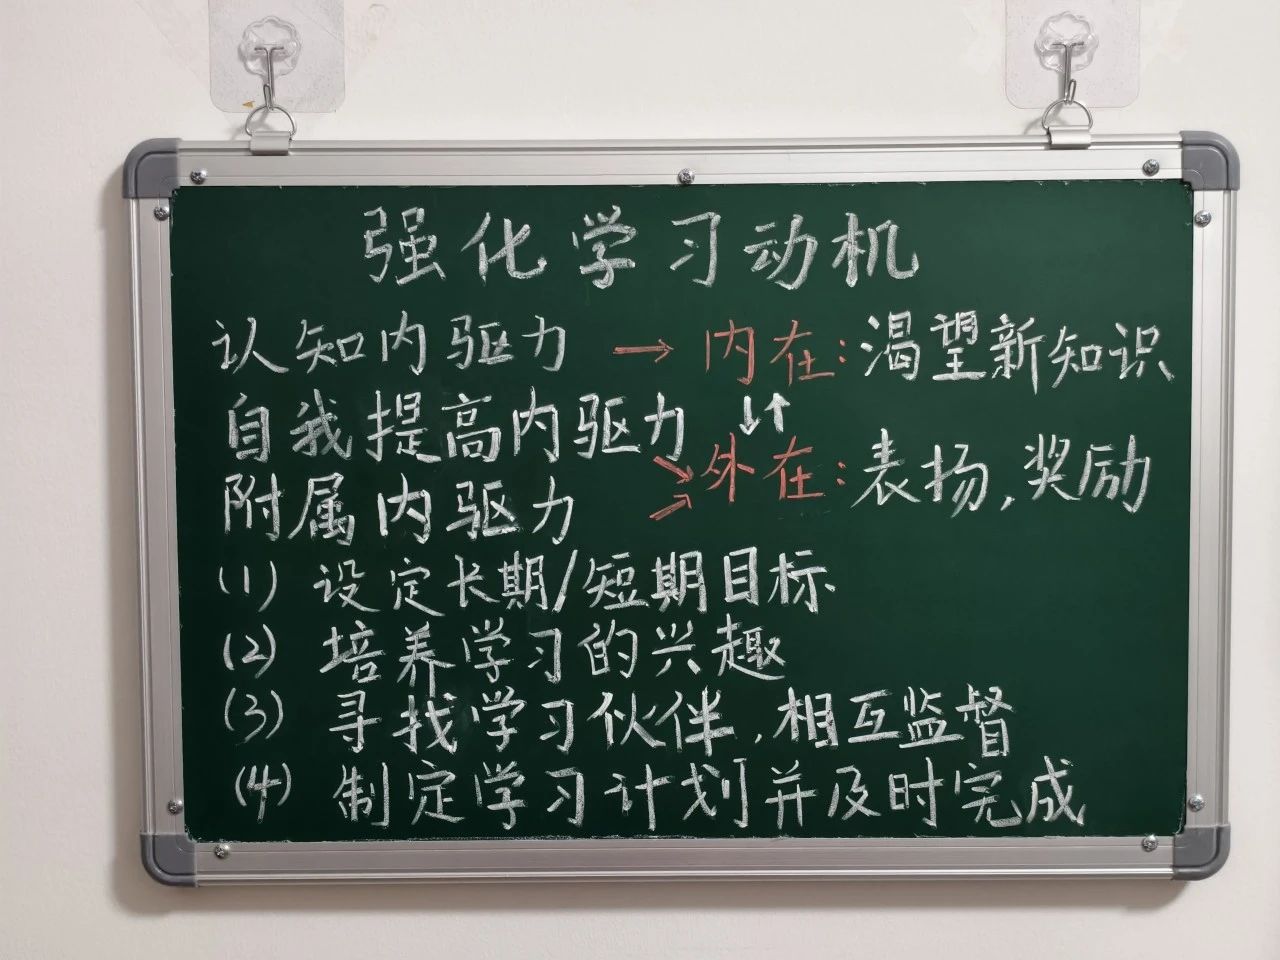 强化学习动机
认知内驱力 → 内在：渴望新知识
↓↑
自我提高内驱力
↘ 外在：表扬，奖励
附属内驱力 ↗
(1) 设定长期/短期目标
(2) 培养学习的兴趣
(3) 寻找学习伙伴，相互监督
(4) 制定学习计划并及时完成